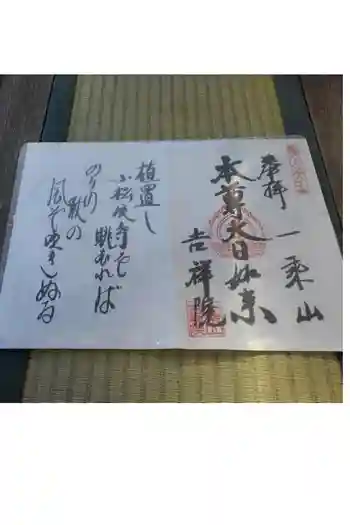 奉拝
一乗山
本尊大日如来
吉祥院
植置し
小松大寺を
眺むれば
のりの
風ぞ吹きぬる